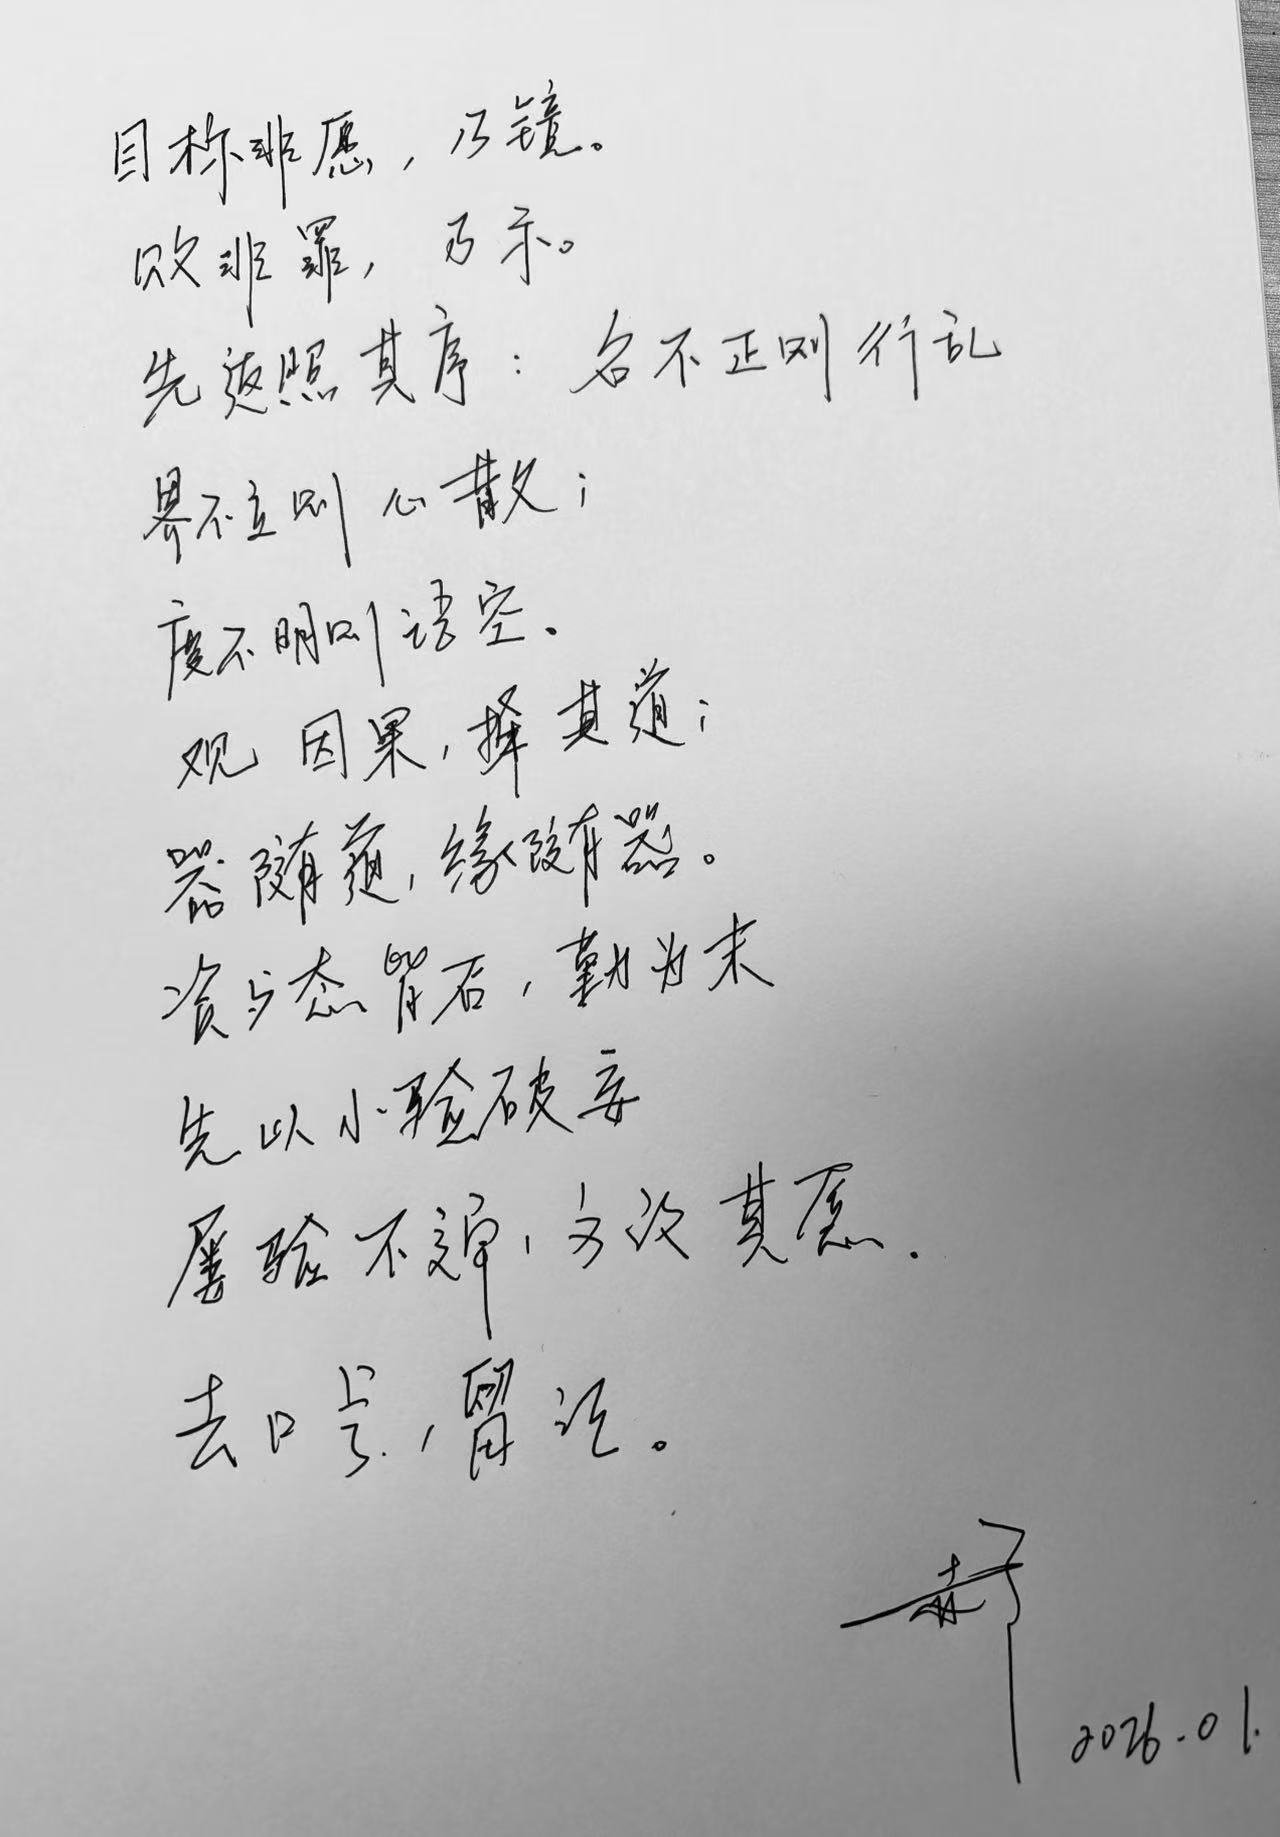 目标非愿，乃镜。
败非罪，乃示。
先返照其序：名不正则行乱
界不立则心散；
度不明则语空.
观因果，择其道；
器随道，缘随器。
资与态皆后，勤为末
先以小验破妄
屡验不,方改其愿.
去口号,留证。
2026.01.